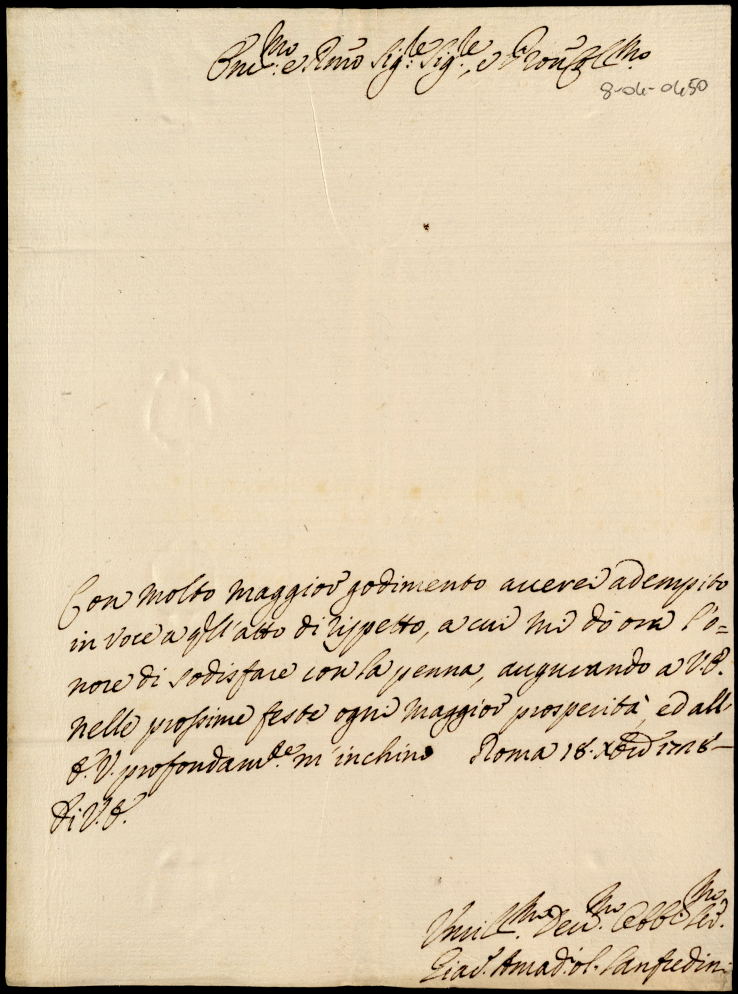 Em.mo e Rmo Sig.re Sig.re, e Pron Col.mo
8-04-0450
Con molto maggior godimento averei adempito
in voce a qll'atto di rispetto, a cui mi dò ora l'o=
nore di sodisfare con la penna, augurando a V.E.
nelle prossime feste ogni maggior prosperità, ed all'
E.V. profondam.te m'inchino Roma 18. Xbre 1728-
Di V.E.
Umil.mo Dev.mo Obb.mo Ser.
Giac. Amad. Lanfredin